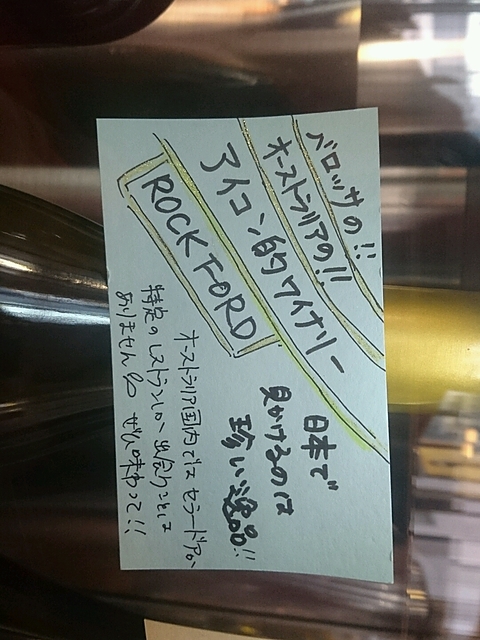 バロッサの!!
オーストラリアの!!
アイコン的ワイナリー
ROCKFORD
日本で
見かけるのは
珍しい逸品!!
オーストラリア国内ではセラードアか、
特定のレストランしか、出会うことは
ありません。ぜひ味わって!!